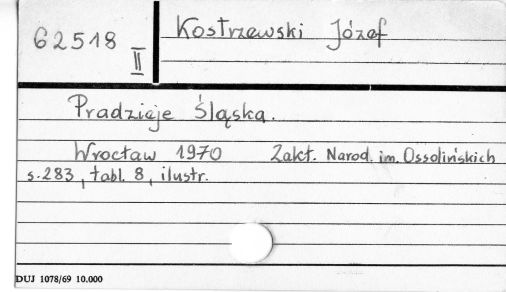 62518 II
Kostrzewski Józef
Pradzieje Śląska.
Wrocław 1970 Zakł. Narod. im. Ossolińskich
s. 283, tabl. 8, ilustr.
DUJ 1078/69 10.000